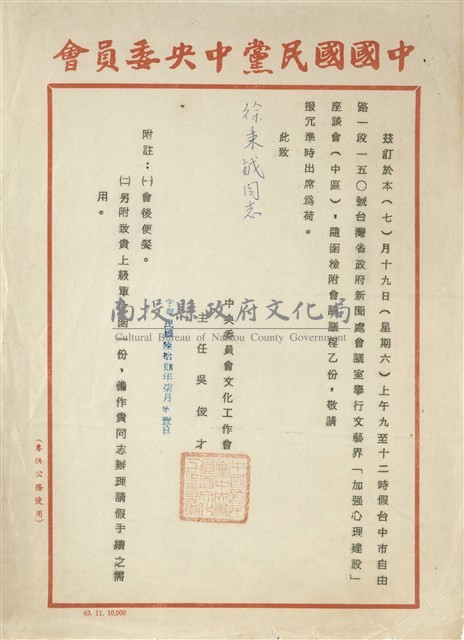 中國國民黨中央委員會
茲訂於本(七)月十九日(星期六)上午九至十二時假台中市自由
路一段一五〇號台灣省政府新聞處會議室舉行文藝界「加强心理建設」
座談會(中區)，隨函檢附會議議程乙份，敬請
撥冗準時出席爲荷。
此致
徐秉鉞同志
中央委員會文化工作會
主任吳俊才
中華民國陸拾肆年柒月
附註：㈠會後便餐。
㈡另附致貴上級單位函一份，備作貴同志辦理請假手續之需
用。
(專供公務使用)
63. 11. 10,000
南投縣政府文化局
Cultural Bureau of Nantou County Government